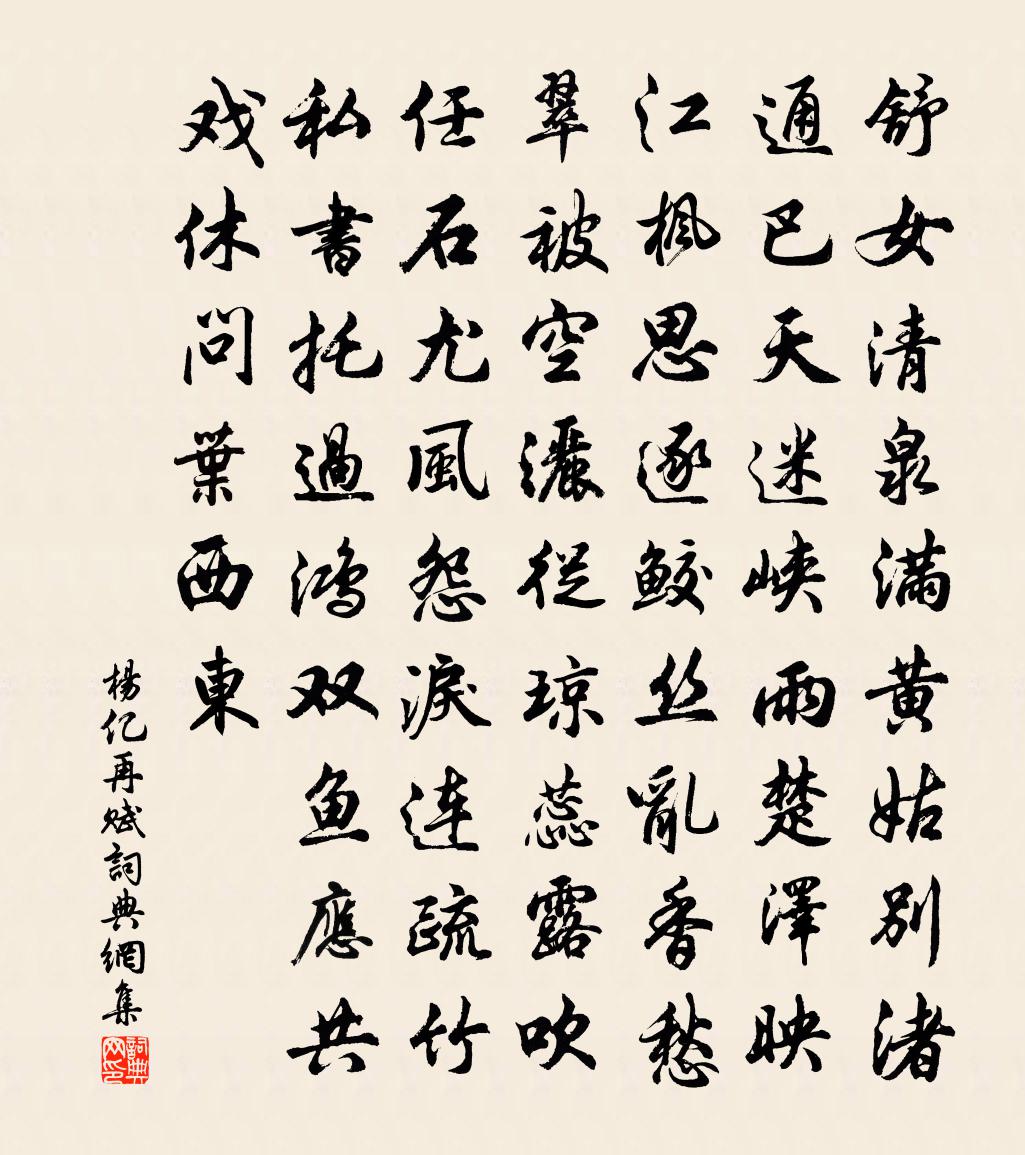 舒女清泉满黄姑别渚
通巳天迷峡雨楚澤映
江楓思逐鲛丝亂香愁
翠被空灑從琼蕊露吹
任石尤風怨淚连疏竹
私書托過鸿双鱼應共
戏休問葉西東
楊亿再赋詞典網集
詞典网印